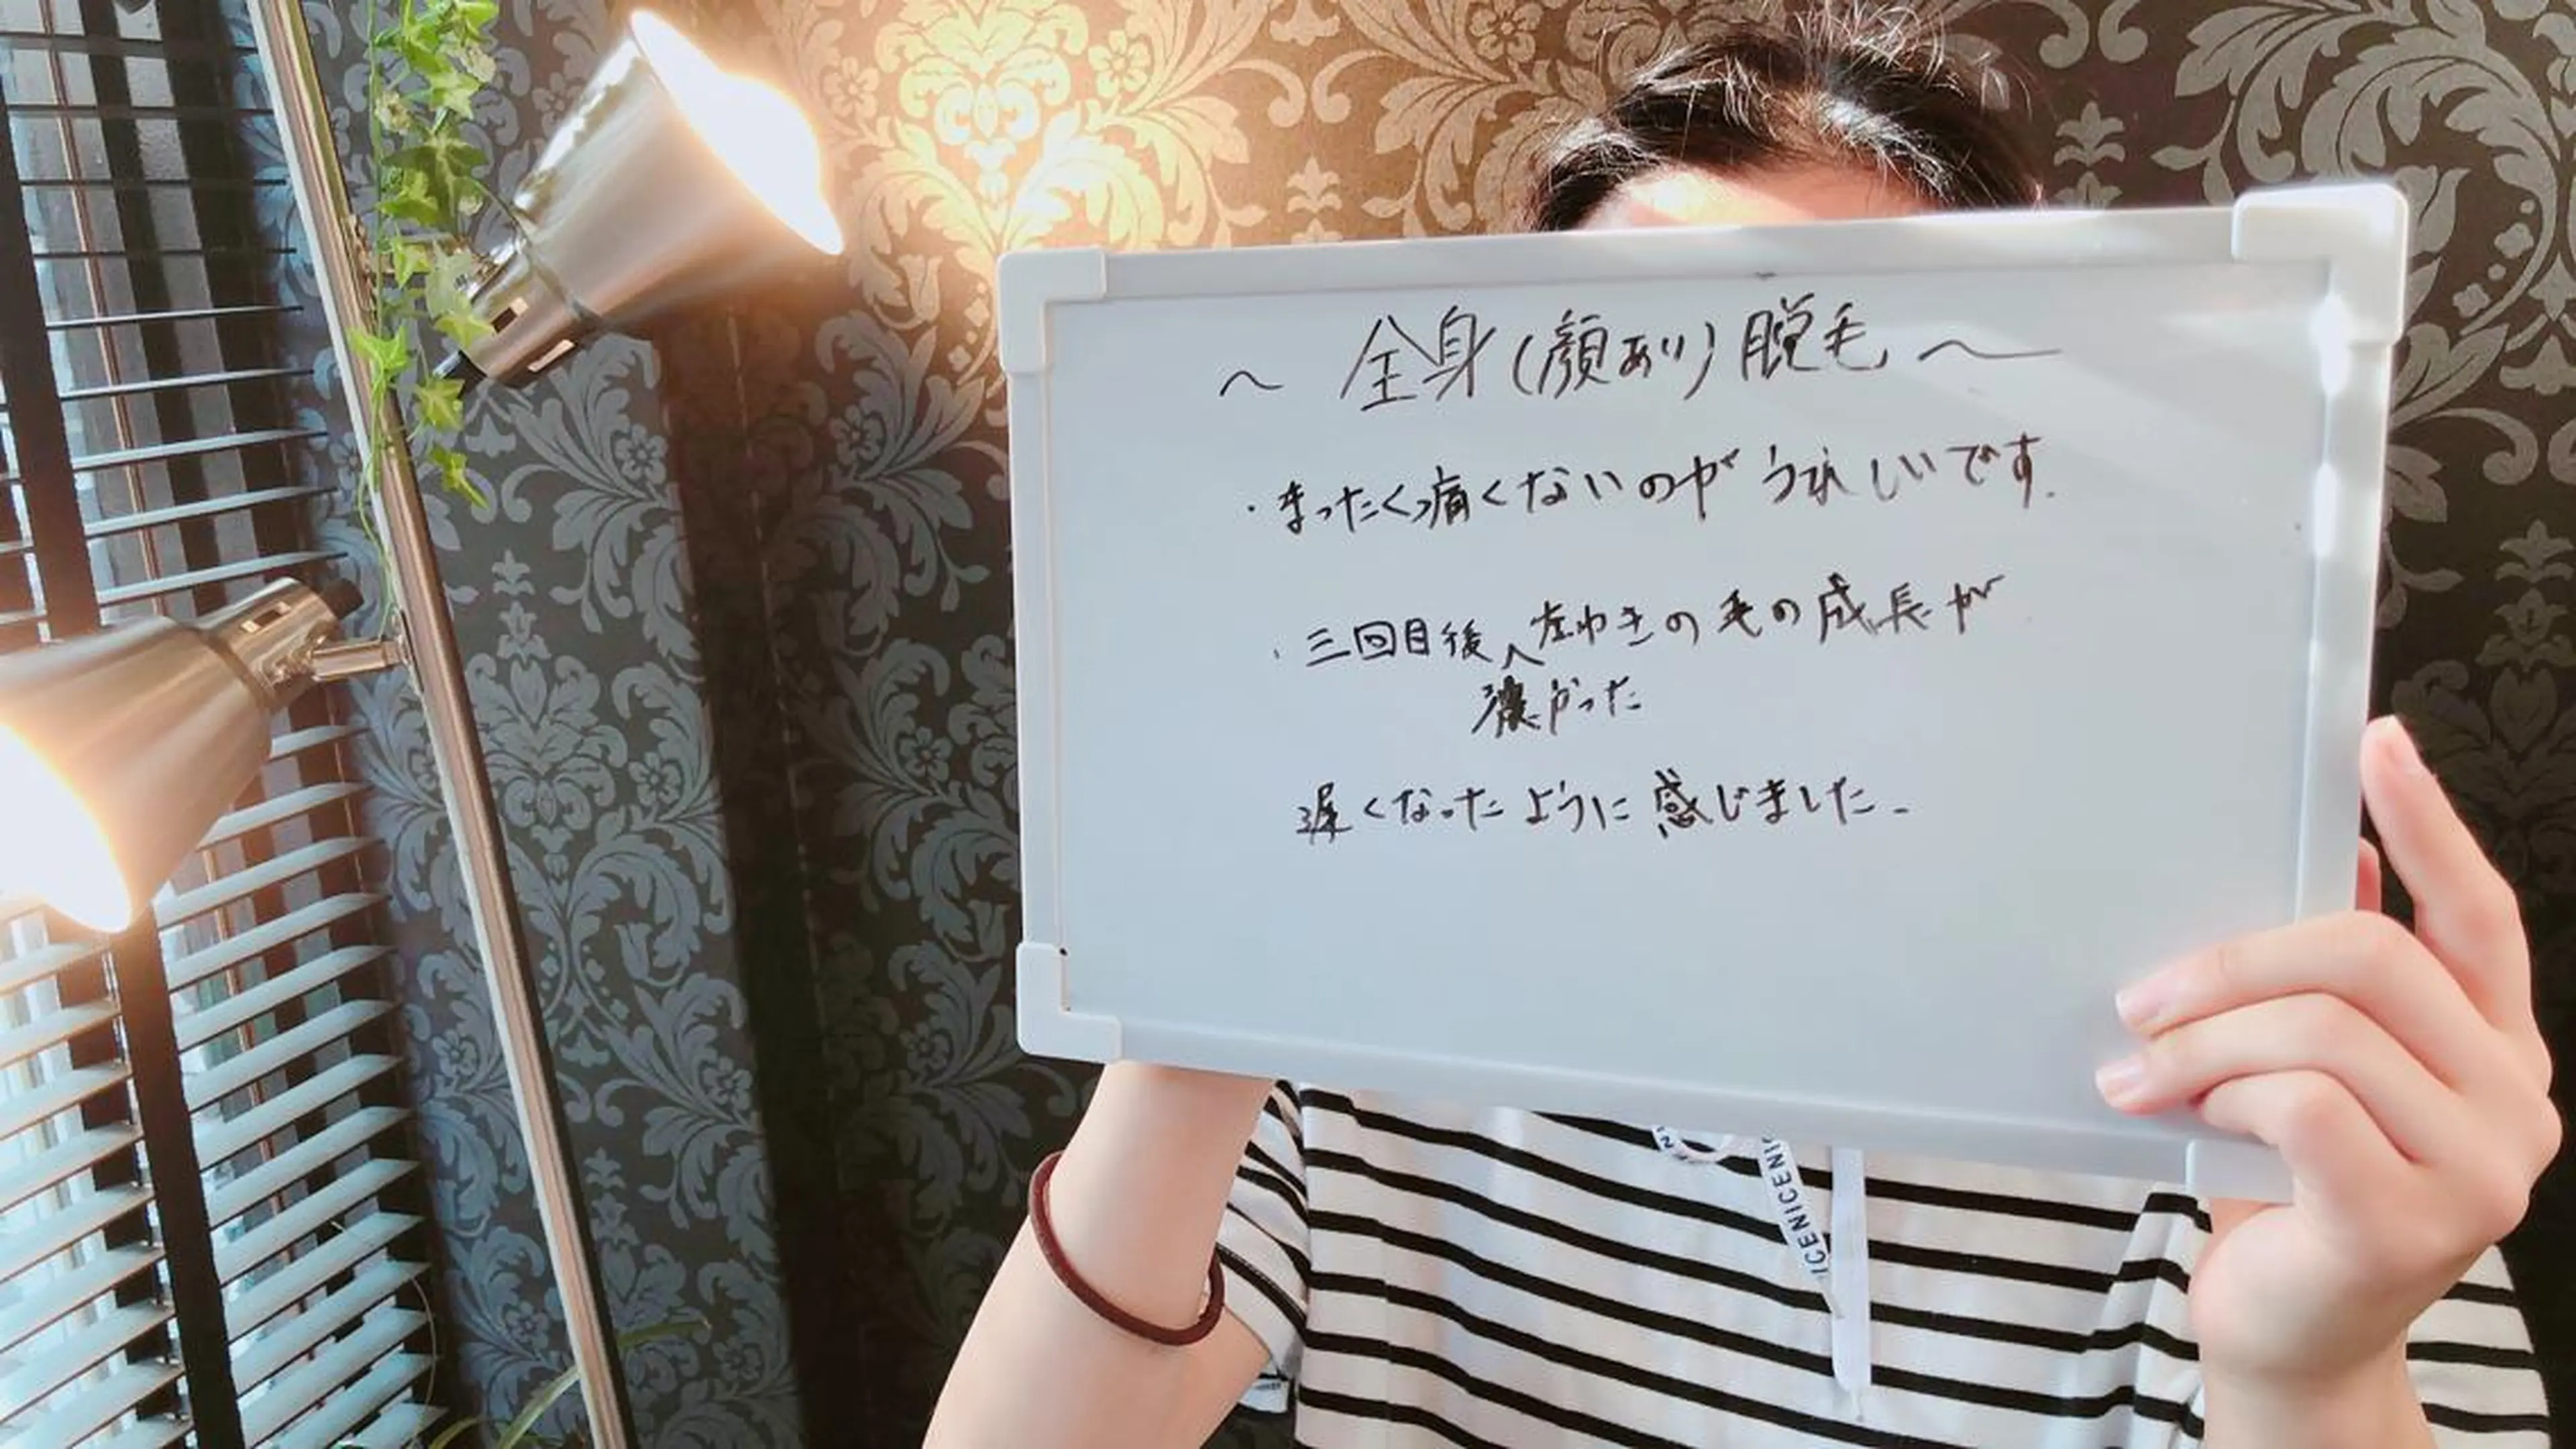 ～ 全身(顔あり)脱毛 ～
・まったく痛くないのが うれしいです.
・三回目後 左わきの毛の成長が
濃かった
遅くなったように感じました.
ICENICENI